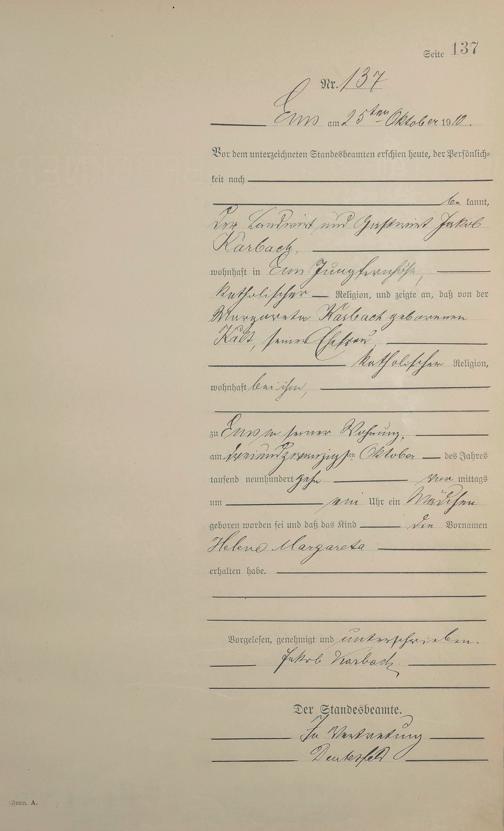 Seite 137
Nr. 137
Ems am 25ten Oktober 1910.
Vor dem unterzeichneten Standesbeamten erschien heute, der Persönlich-
keit nach
be kannt,
Der Landwirt und Gastwirt Jakob
Karbach,
wohnhaft in Ems Jungfernhöhe,
katholischer Religion, und zeigte an, daß von der
Margareta Karbach geborenen
Kalt, seiner Ehefrau,
katholischer Religion,
wohnhaft bei ihm,
zu Ems in seiner Wohnung,
am dreiundzwanzigsten Oktober des Jahres
tausend neunhundert zehn vor mittags
um ein Uhr ein Mädchen
geboren worden sei und daß das Kind die Vornamen
Helene Margareta
erhalten habe.
Vorgelesen, genehmigt und unterschrieben.
Jakob Karbach
Der Standesbeamte.
In Vertretung